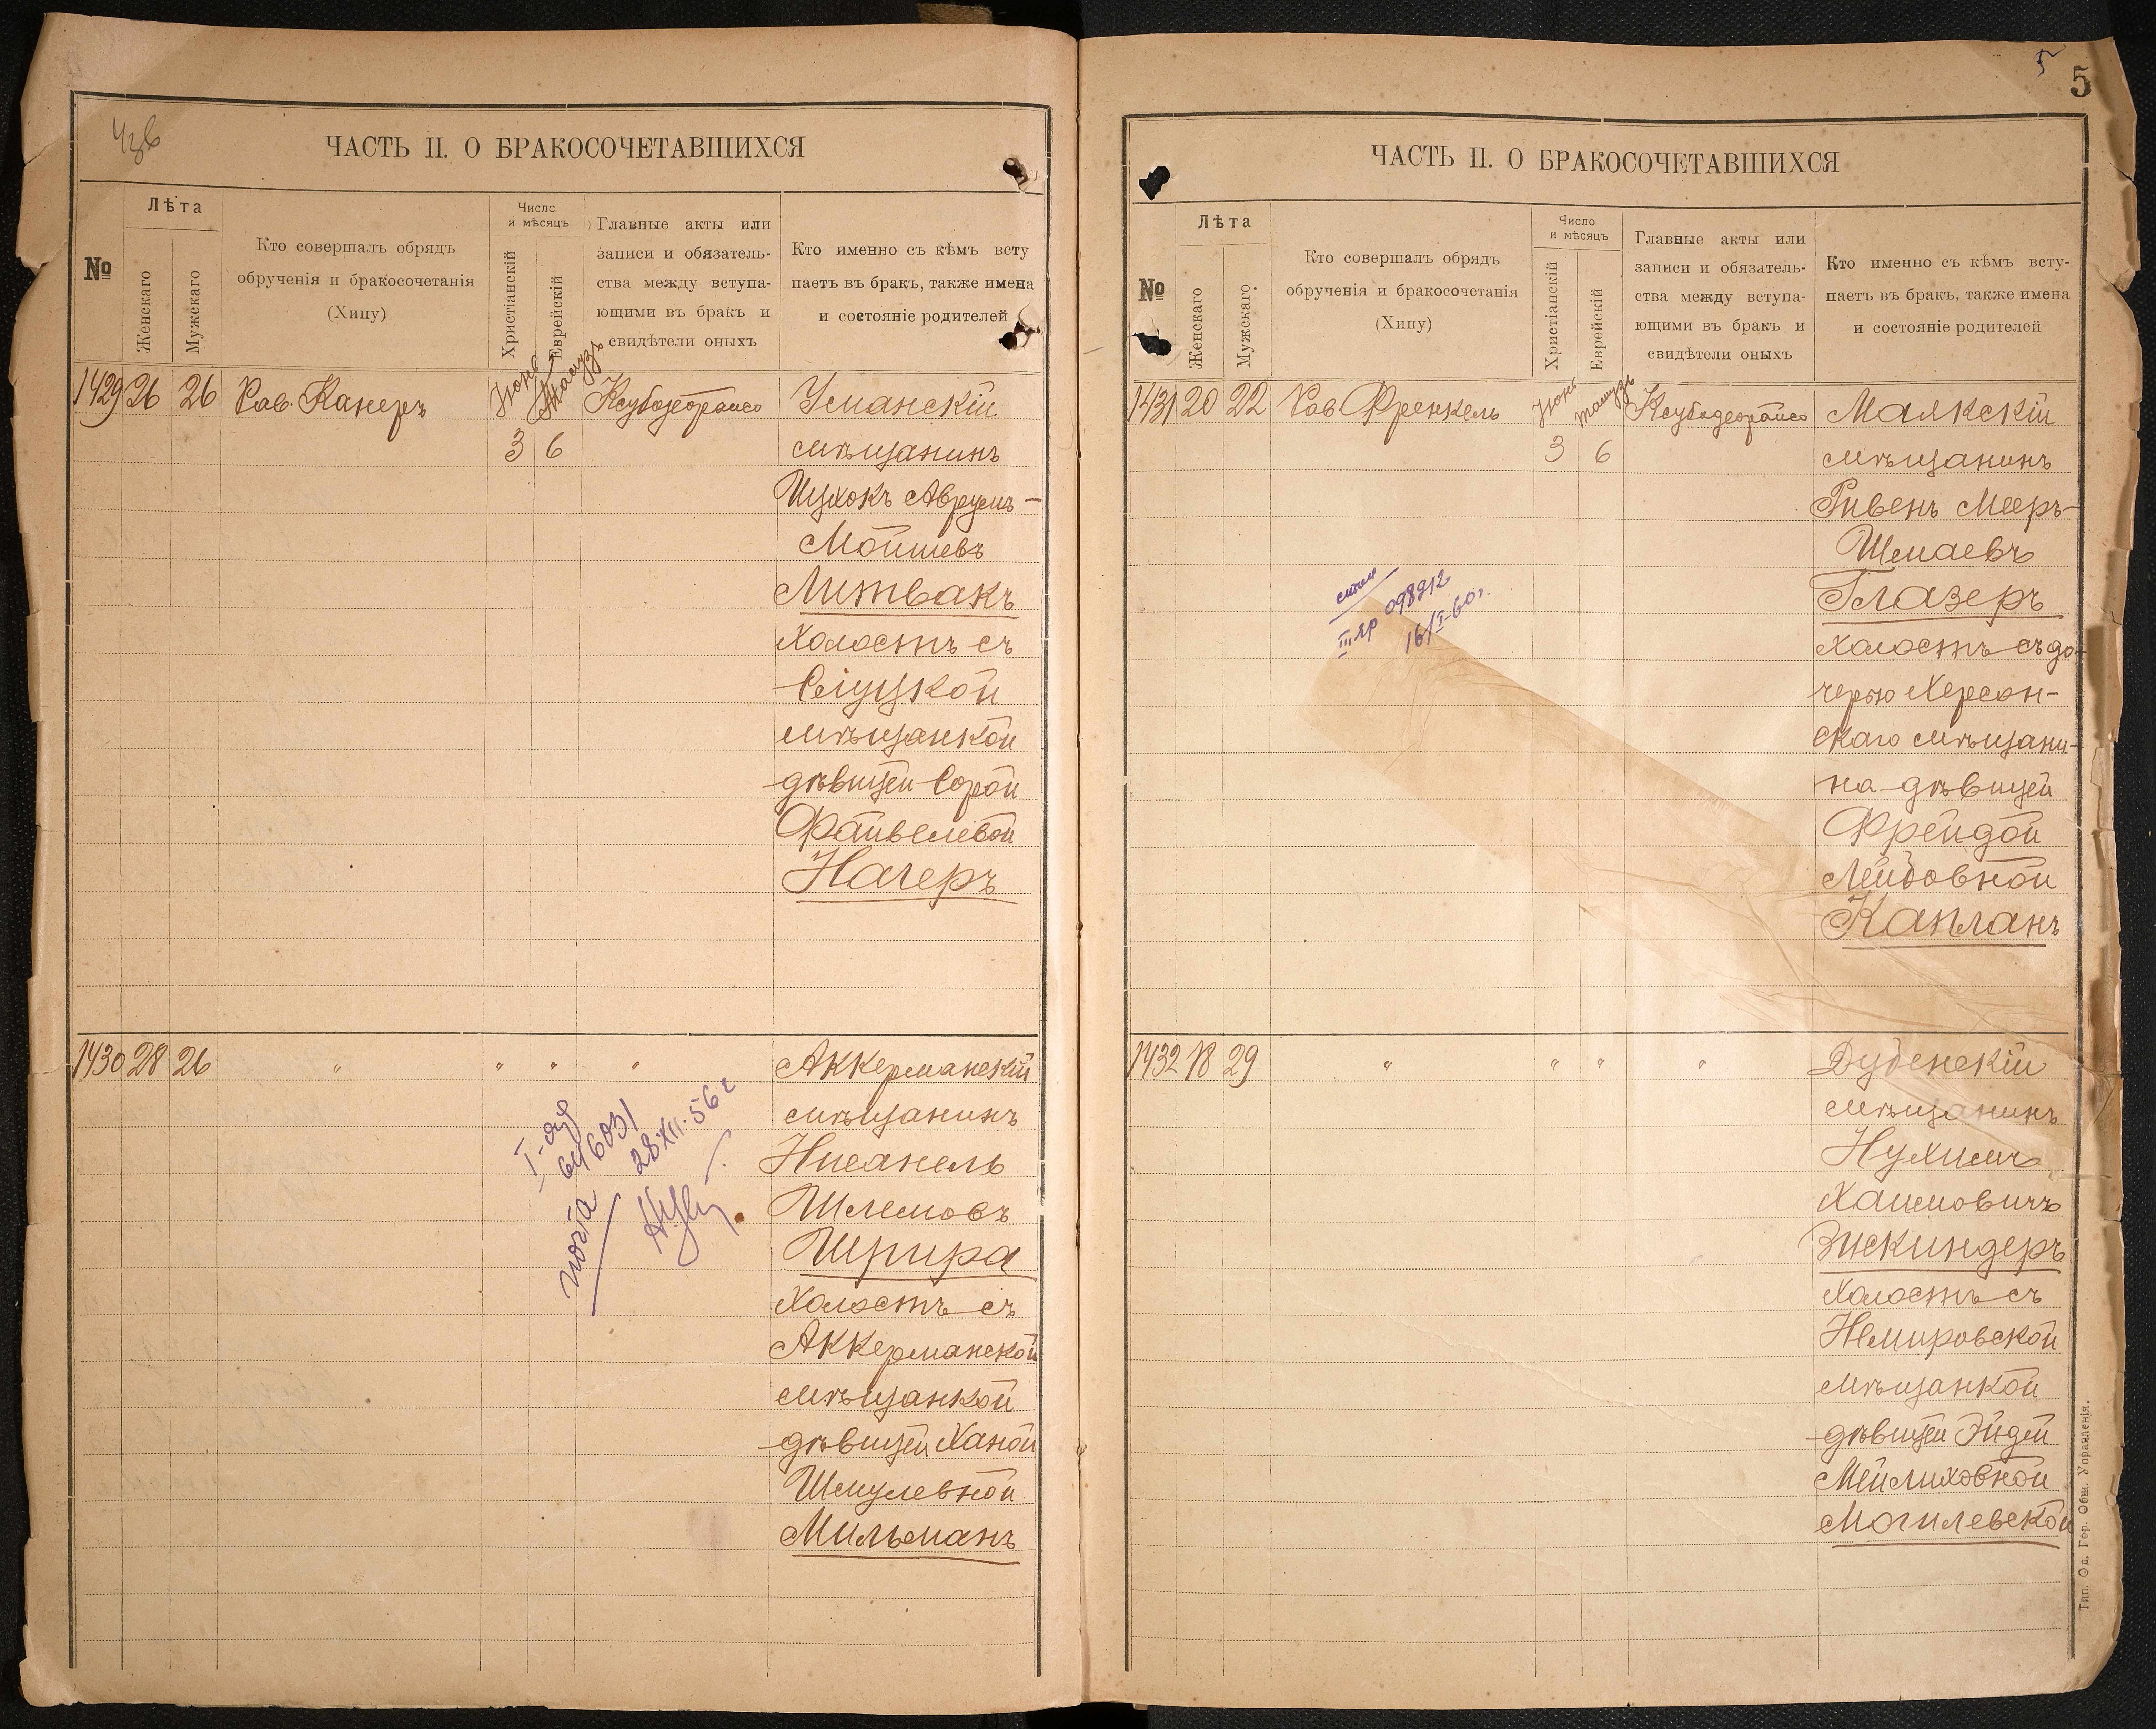 ЧАСТЬ II. О БРАКОСОЧЕТАВШИХСЯ
№
Лѣта
Женскаго
Мужскаго
Кто совершалъ обрядъ
обрученія и бракосочетанія
(Хипу)
Число
и мѣсяцъ
Христіанскій
Еврейскій
Главные акты или
записи и обязатель-
ства между вступа-
ющими въ бракъ и
свидѣтели оныхъ
Кто именно съ кѣмъ всту
паетъ въ бракъ, также имена
и состояніе родителей
1429 26 26 Рав. Канеръ Іюнь Тамузъ Ксубодеорайсо Уманскій
3 6 мѣщанинъ
Ицхокъ Аврумъ-
Мойшевъ
Литвакъ
холостъ съ
Слуцкой
мѣщанкой
дѣвицей Сорой
Файвелевой
Нагеръ
1430 28 26 " " " " Аккерманскій
мѣщанинъ
Нисанель
Шлемовъ
Шпира
холостъ съ
Аккерманской
мѣщанкой
дѣвицей Ханой
Шмулевной
Мильманъ
646031
28.XII.56 г
почта
5
5
ЧАСТЬ II. О БРАКОСОЧЕТАВШИХСЯ
№
Лѣта
Женскаго
Мужскаго
Кто совершалъ обрядъ
обрученія и бракосочетанія
(Хипу)
Число
и мѣсяцъ
Христіанскій
Еврейскій
Главные акты или
записи и обязатель-
ства между вступа-
ющими въ бракъ и
свидѣтели оныхъ
Кто именно съ кѣмъ всту-
паетъ въ бракъ, также имена
и состояніе родителей
1431 20 22 Рав Френкель Іюнь Тамузъ Ксубодеорайсо Маякскій
3 6 мѣщанинъ
Ривенъ Мееръ-
Шмаевъ
Глазеръ
холостъ съ до-
черью Херсон-
скаго мѣщани-
на дѣвицей
Фрейдой
Лейбовной
Капланъ
098212
16/I-60г.
1432 18 29 " " " " Дубенскій
мѣщанинъ
Нухимъ
Хаимовичъ
Зискиндеръ
холостъ съ
Немировской
мѣщанкой
дѣвицей Эйдей
Мейлиховной
Могилевской
Тип. Од. Гор. Общ. Управленія.